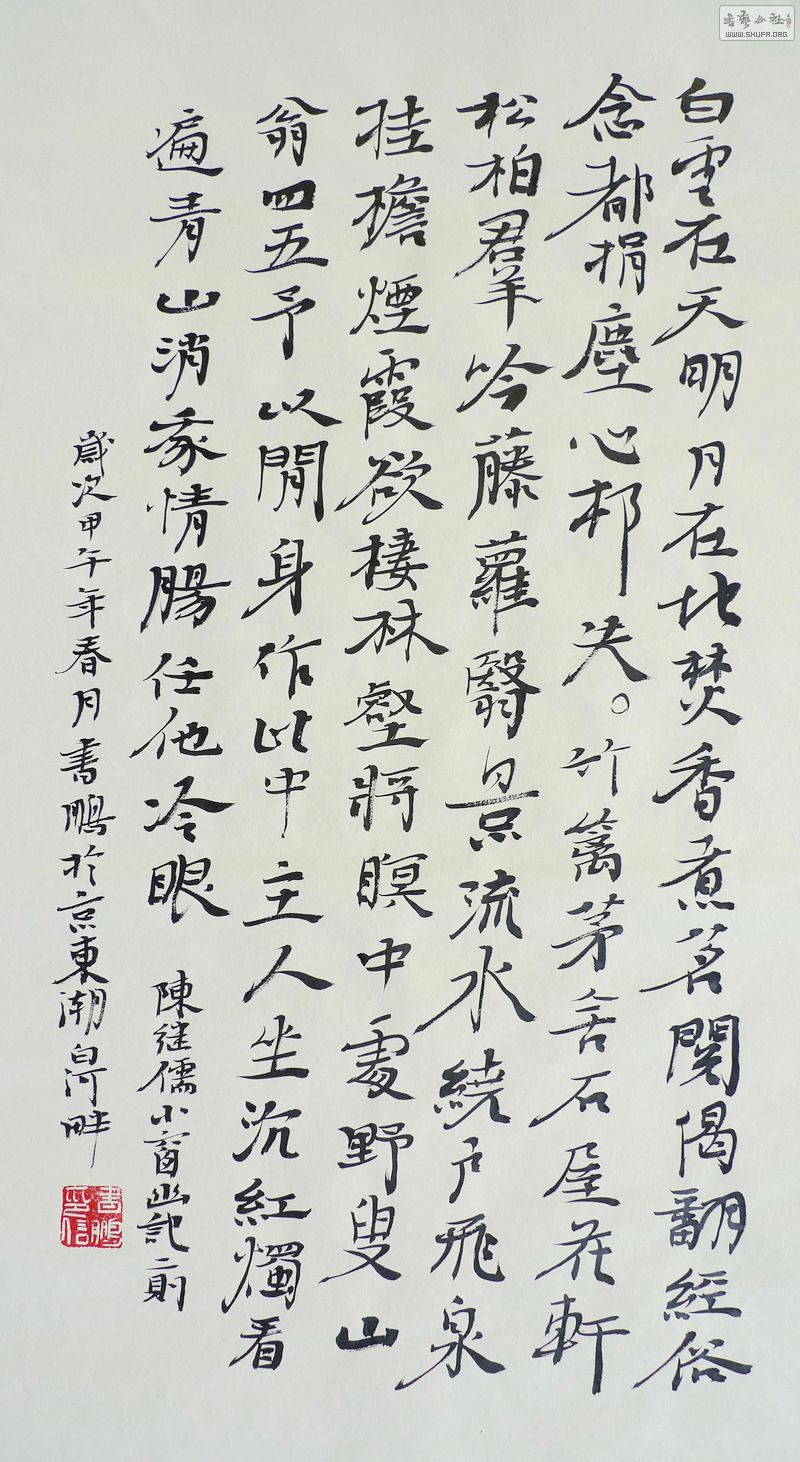 白雲在天明月在地焚香煮茗閱偈翻經俗
念都捐塵心都失。竹籬茅舍石屋花軒
松柏羣吟藤蘿翳景流水繞戶飛泉
挂檐煙霞欲棲林壑將瞑中處野叟山
翁四五予以閒身作此中主人坐沉紅燭看
遍青山消我情腸任他冷眼
陳継儒小窗幽記二則
歲次甲午年春月書鵬於京東潮白河畔
書鵬印信
書藝公社
WWW.SHUFA.ORG